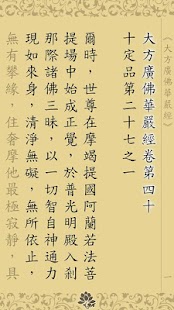 《大方廣佛華嚴經》 一
大方廣佛華嚴經卷第四十
十定品第二十七之一
爾時，世尊在摩竭提國阿蘭若法菩
提場中始成正覺，於普光明殿入剎
那際諸佛三昧，以一切智自神通力
現如來身，清淨無礙，無所依止，
無有攀緣，住奢摩他最極寂靜，具